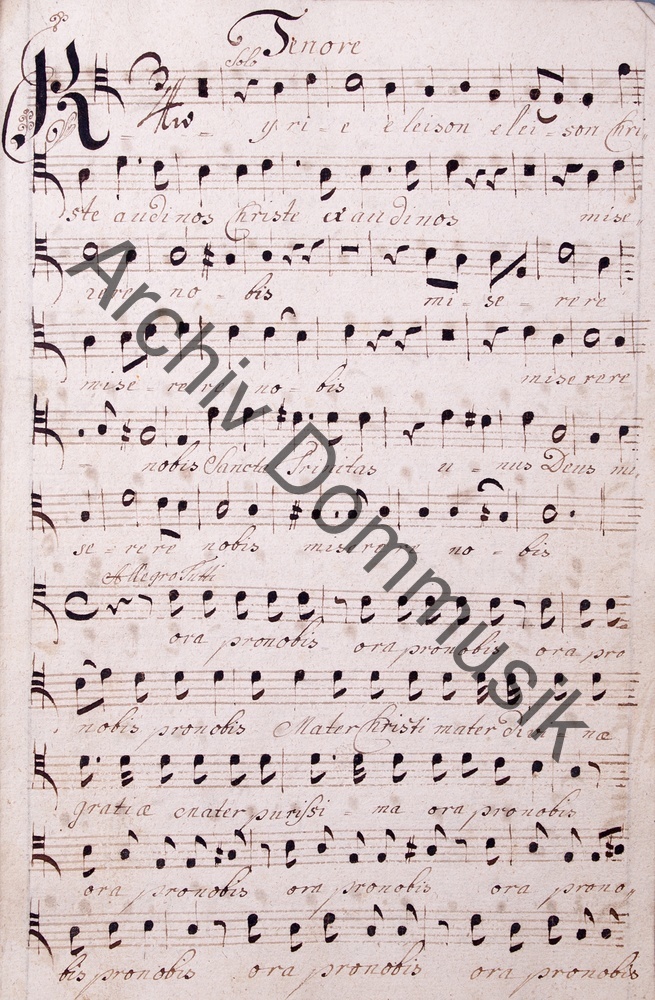 Tenore
Solo
K - - y ri - e eleison elei - son Chri„
ste audi nos Christe exaudi nos mise„
rere no - bis mi - se - rere
mise - rere no - bis miserere
nobis Sancta Trinitas u - nus Deus mi„
se - rere nobis miserere no - bis
Allegro Tutti
ora pro nobis ora pro nobis ora pro
nobis pro nobis Mater Christi mater divi - næ
gratiæ mater purissi - ma ora pro nobis
ora pro nobis ora pro nobis ora prono„
bis pro nobis ora pro nobis ora pro nobis
Archiv Dommusik